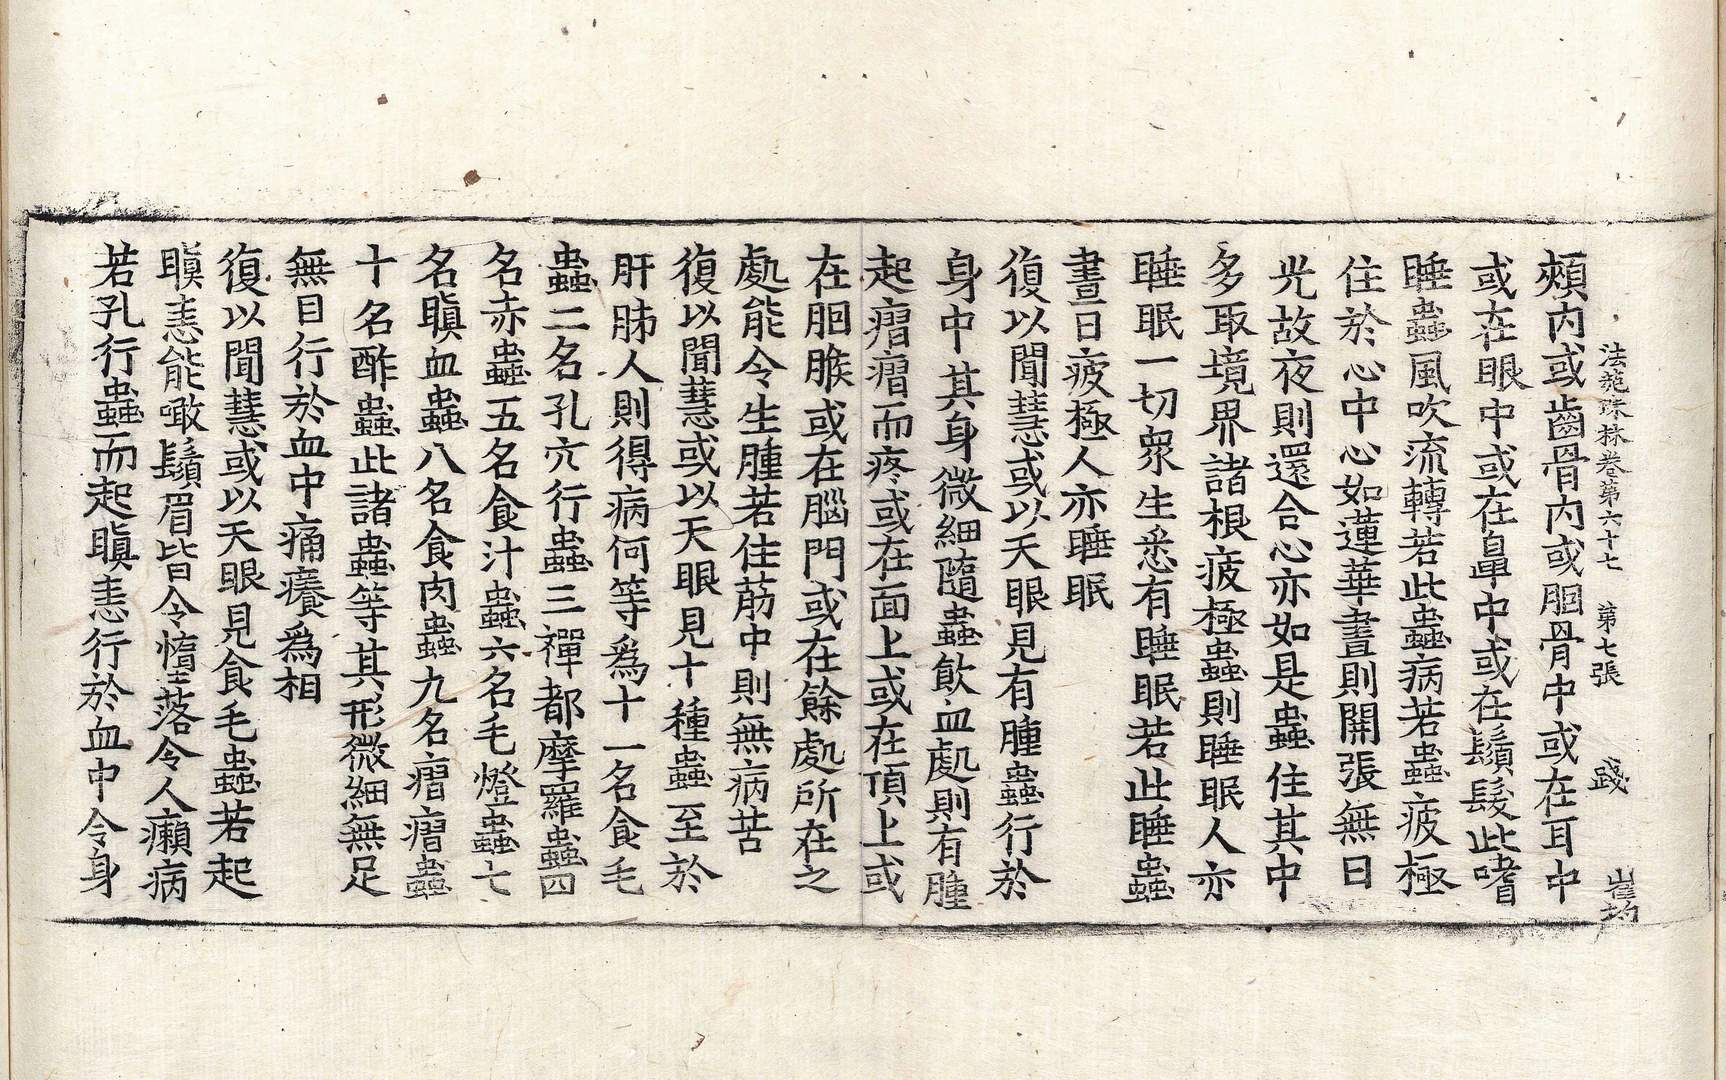 法苑珠林卷第六十七 第七張 㦮 崔均
頰内或齒骨内或䐃骨中或在耳中
或在眼中或在鼻中或在鬚髮此嗜
睡蟲風吹流轉若此蟲病若蟲疲極
住於心中心如蓮華晝則開張無日
光故夜則還合心亦如是蟲住其中
多取境界諸根疲極蟲則睡眠人亦
睡眠一切衆生悉有睡眠若此睡蟲
晝日疲極人亦睡眠
復以聞慧或以天眼見有腫蟲行於
身中其身微細隨蟲飲血處則有腫
起瘤瘤而疼或在面上或在頂上或
在咽喉或在腦門或在餘處所在之
處能令生腫若住筋中則無病苦
復以聞慧或以天眼見十種蟲至於
肝肺人則得病何等爲十一名食毛
蟲二名孔穴行蟲三禪都摩羅蟲四
名赤蟲五名食汁蟲六名毛燈蟲七
名瞋血蟲八名食肉蟲九名瘤瘤蟲
十名酢蟲此諸蟲等其形微細無足
無目行於血中痛癢爲相
復以聞慧或以天眼見食毛蟲若起
瞋恚能噉鬚眉皆令墮落令人癩病
若孔行蟲而起瞋恚行於血中令身